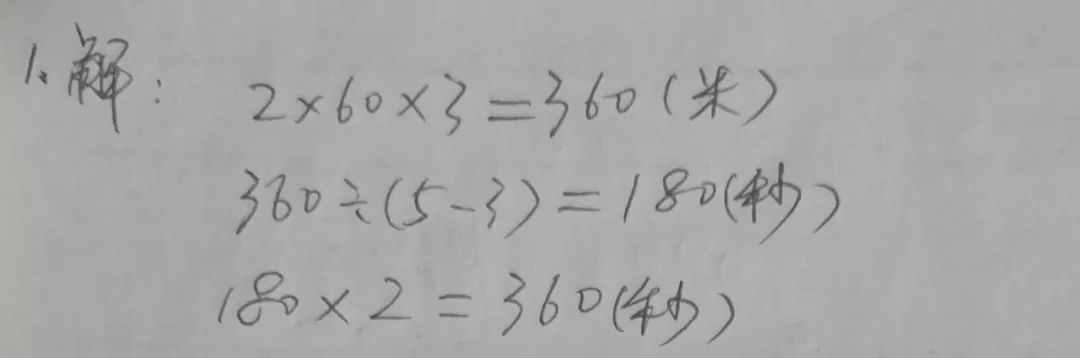 1、解：
2×60×3=360（米）
360÷(5-3)=180(秒)
180×2=360(秒)